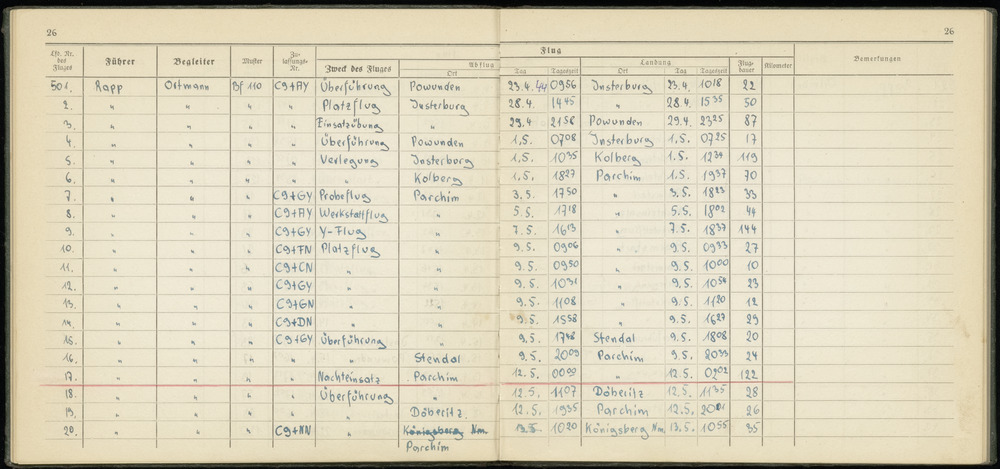 26 26
Lfd. Nr. des Fluges Führer Begleiter Muster Zulassungs-Nr. Zweck des Fluges Abflug Ort Tag Tageszeit Flug Landung Ort Tag Tageszeit Flugdauer Kilometer Bemerkungen
501. Rapp Ortmann Bf 110 C9+AY Überführung Powunden 23.4.44 0956 Insterburg 23.4. 1018 22
2. " " " " Platzflug Insterburg 28.4. 1445 " 28.4. 1535 50
3. " " " " Einsatzübung " 29.4 2158 Powunden 29.4. 2325 87
4. " " " " Überführung Powunden 1.5. 0708 Insterburg 1.5. 0725 17
5. " " " " Verlegung Insterburg 1.5. 1035 Kolberg 1.5. 1234 119
6. " " " " " Kolberg 1.5. 1827 Parchim 1.5. 1937 70
7. " " " C9+GY Probeflug Parchim 3.5. 1750 " 3.5. 1823 33
8. " " " C9+AY Werkstattflug " 5.5. 1718 " 5.5. 1802 44
9. " " " C9+GY Y-Flug " 7.5. 1613 " 7.5. 1837 144
10. " " " C9+FN Platzflug " 9.5. 0906 " 9.5. 0933 27
11. " " " C9+CN " " 9.5. 0950 " 9.5. 1000 10
12. " " " C9+GY " " 9.5. 1031 " 9.5. 1054 23
13. " " " C9+GN " " 9.5. 1108 " 9.5. 1120 12
14. " " " C9+DN " " 9.5. 1558 " 9.5. 1627 29
15. " " " C9+GY Überführung " 9.5. 1748 Stendal 9.5. 1808 20
16. " " " " " Stendal 9.5. 2009 Parchim 9.5. 2033 24
17. " " " " Nachteinsatz Parchim 12.5. 0000 " 12.5. 0202 122
18. " " " " Überführung " 12.5. 1107 Döberitz 12.5. 1135 28
19. " " " " " Döberitz. 12.5. 1935 Parchim 12.5. 2001 26
20. " " " C9+NN " Königsberg Nm. 13.5. 1020 Königsberg Nm. 13.5. 1055 35
Parchim